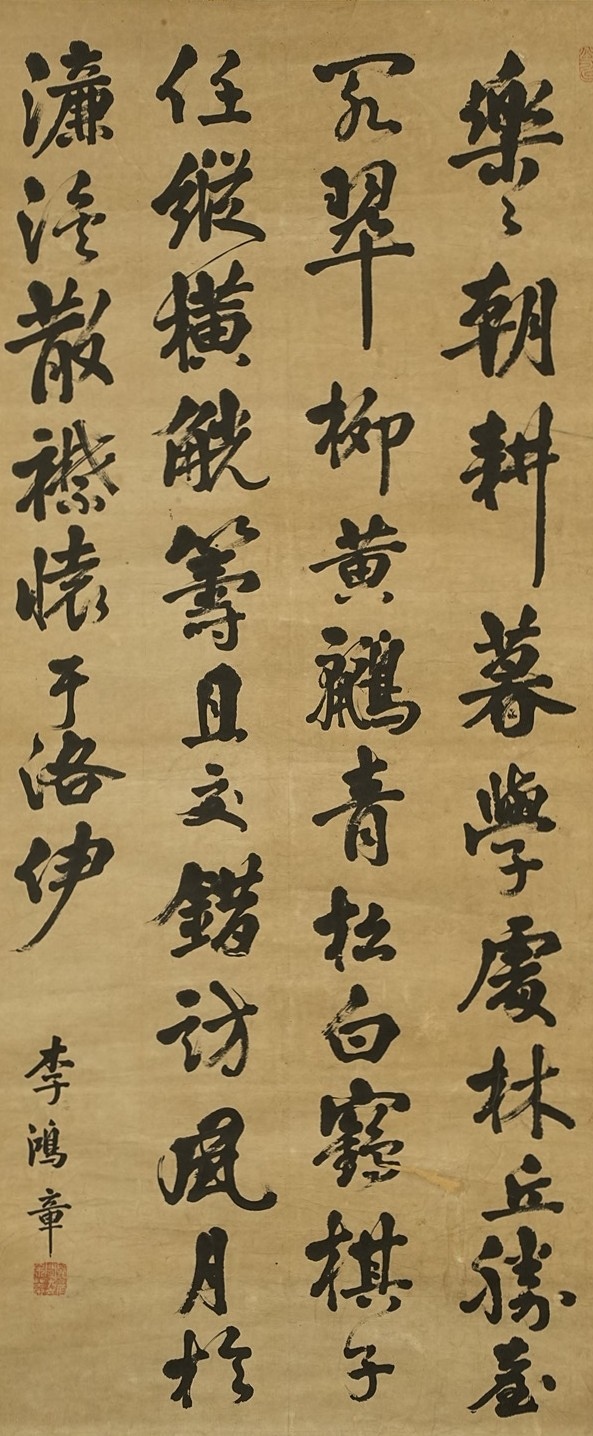 樂〻朝耕暮學處林丘勝臺
閣翠柳黃鸝青松白鶴棋子
任縱橫觥籌且交錯訪風月於
濂溪散襟懷于洛伊
李鴻章